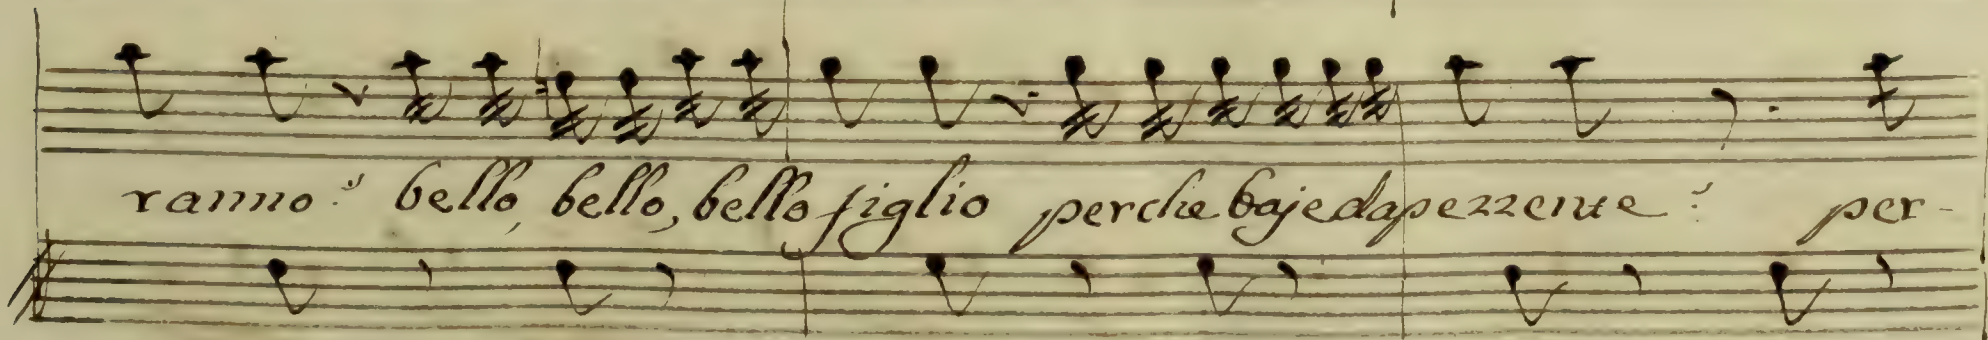 ranno? bello, bello, bello figlio perche baje da pezzente? per-